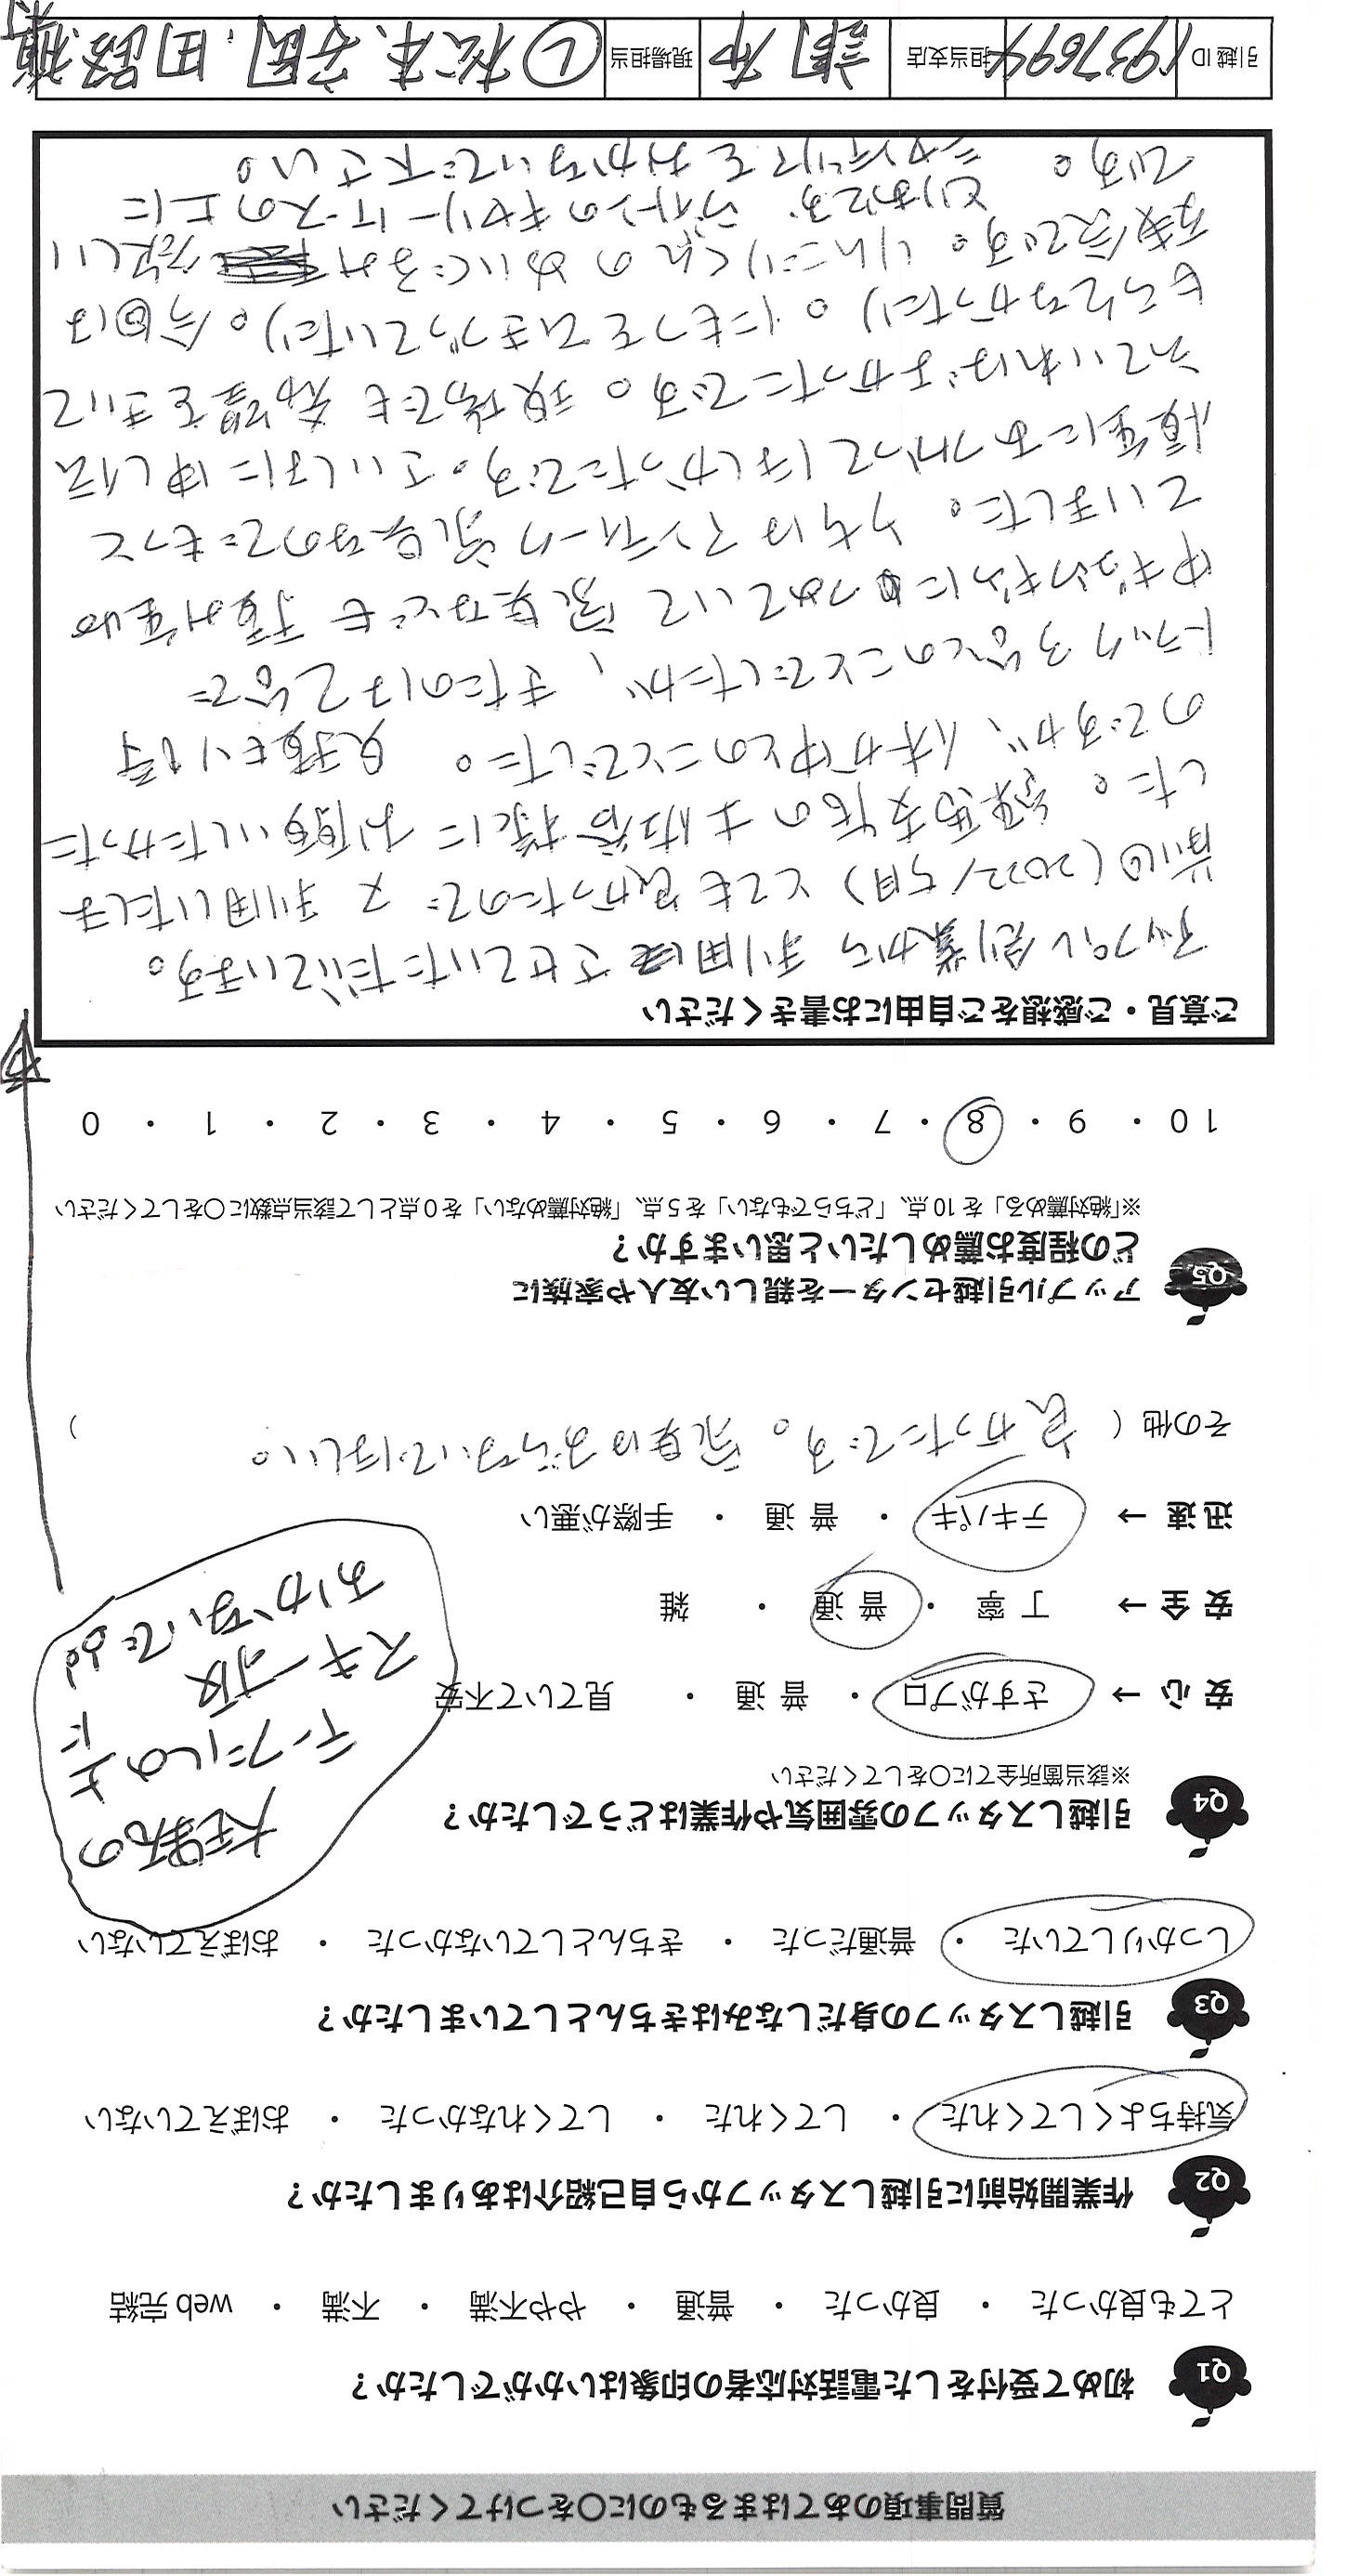 質問事項のあてはまるものに○をつけてください
Q1 初めて受付をした電話対応者の印象はいかがでしたか？
とても良かった ・ 良かった ・ 普通 ・ やや不満 ・ 不満 ・ web 完結
Q2 作業開始前に引越しスタッフから自己紹介はありましたか？
気持ちよくしてくれた ・ してくれた ・ してくれなかった ・ おぼえていない
Q3 引越しスタッフの身だしなみはきちんとしていましたか？
しっかりしていた ・ 普通だった ・ きちんとしていなかった ・ おぼえていない
Q4 引越しスタッフの雰囲気や作業はどうでしたか？
※該当箇所全てに○をしてください
安 心 → さすがプロ ・ 普 通 ・ 見ていて不安
安 全 → 丁 寧 ・ 普 通 ・ 雑
迅 速 → テキパキ ・ 普 通 ・ 手際が悪い
その他（ 良かったです。家具は ほしい。 ）
大理石の
テーブルの上に
スキー板
おかないで
Q5 アップル引越センターを親しい友人や家族に
どの程度お薦めしたいと思いますか？
※「絶対薦める」を 10 点、「どちらでもない」を 5 点、「絶対薦めない」を 0 点として該当点数に○をしてください
10 ・ 9 ・ 8 ・ 7 ・ 6 ・ 5 ・ 4 ・ 3 ・ 2 ・ 1 ・ 0
ご意見・ご感想をご自由にお書きください
アップル創業から利用させていただいています。
前回(2022/5月) とても良かったので 又 利用いたしま
した。練馬支店の 様にお願いしたかった
のですが、休み中とのことでした。見積もり時
トラック3台とのことでしたが、きたのは2台で
中ギュウギュウにつめていて 家具なども
ていました。うちはアンティーク家具なのでもっと
慎重にあつかってほしかったです。さいしょに申し伝
えていればよかったです。現場でも 希望をきいて
もらえなかったり。にもつをひきづっていたり。今回は
残念です。りんごりんぐの
です。 ヴィトンのキャリーケースの上に
おかないで下さい。
引越 ID 1937694 担当支店 調布 現場担当 Ⓛ松本、